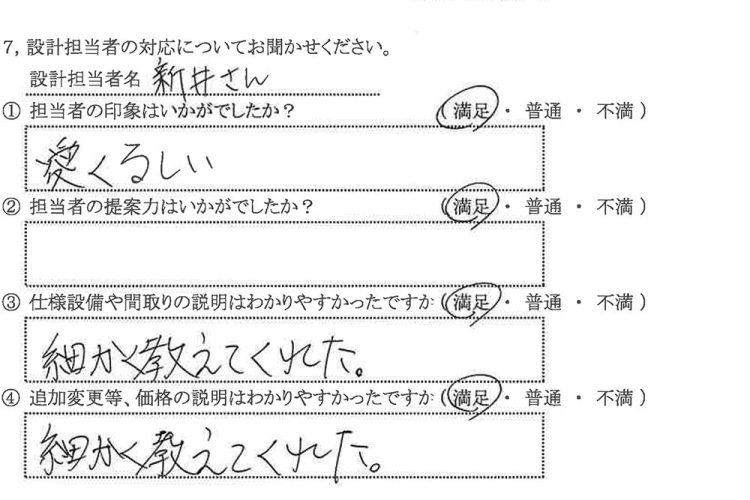 7, 設計担当者の対応についてお聞かせください。
設計担当者名 新井さん
① 担当者の印象はいかがでしたか? (満足 ・ 普通 ・ 不満)
愛くるしい
② 担当者の提案力はいかがでしたか? (満足 ・ 普通 ・ 不満)
③ 仕様設備や間取りの説明はわかりやすかったですか (満足 ・ 普通 ・ 不満)
細かく教えてくれた。
④ 追加変更等、価格の説明はわかりやすかったですか (満足 ・ 普通 ・ 不満)
細かく教えてくれた。